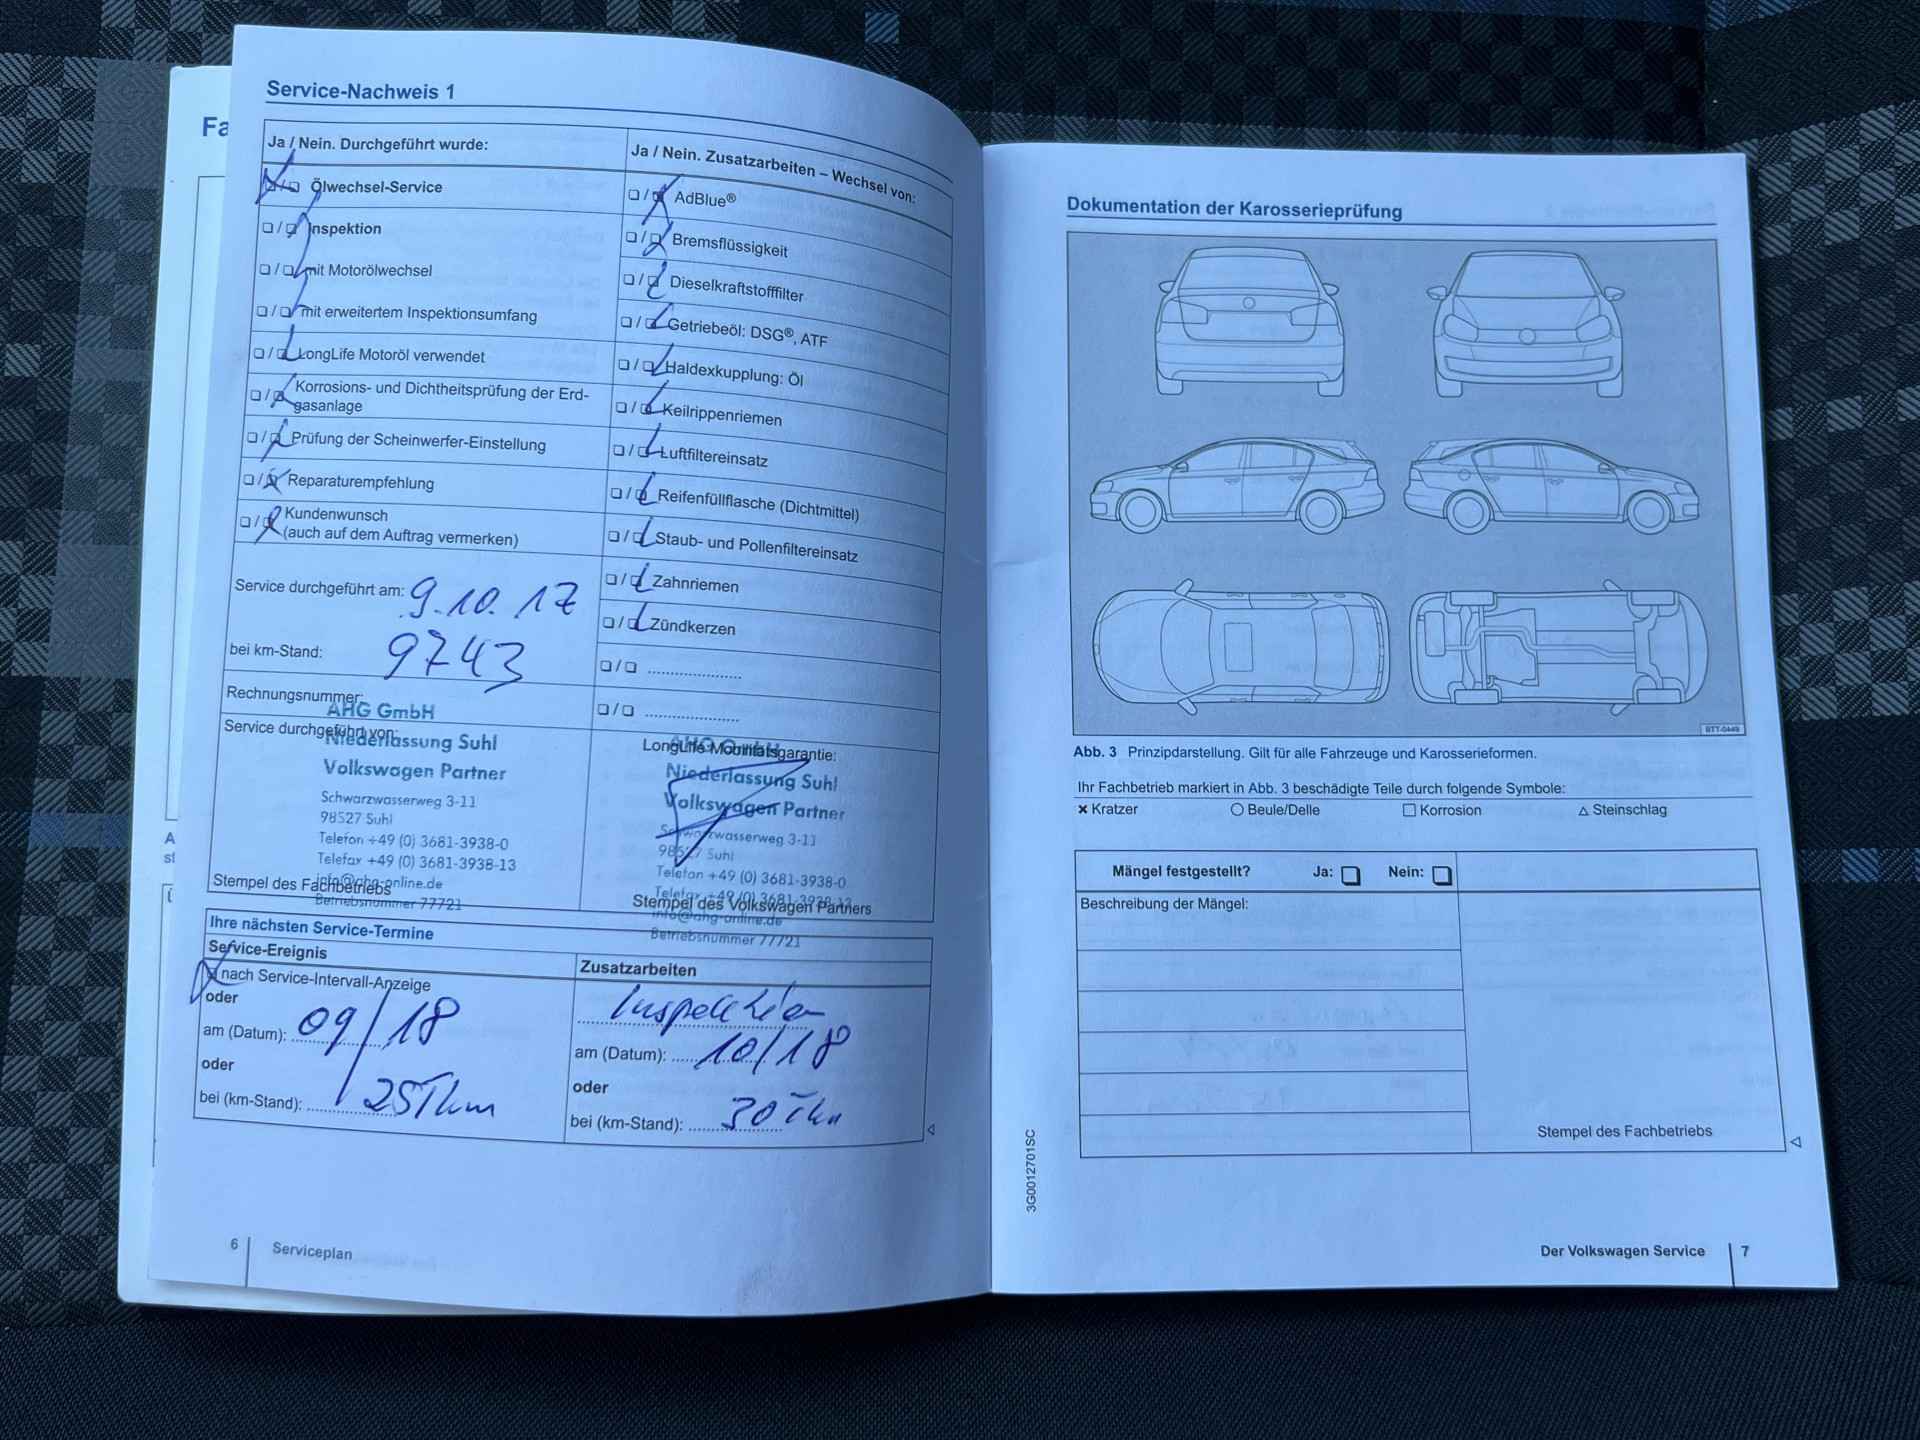 Fa
Service-Nachweis 1
Ja / Nein. Durchgeführt wurde:
Ölwechsel-Service
Inspektion
mit Motorölwechsel
mit erweitertem Inspektionsumfang
LongLife Motoröl verwendet
Korrosions- und Dichtheitsprüfung der Erd-
gasanlage
Prüfung der Scheinwerfer-Einstellung
Reparaturempfehlung
Kundenwunsch
(auch auf dem Auftrag vermerken)
Service durchgeführt am: 9.10.17
bei km-Stand: 9743
Rechnungsnummer:
Service durchgeführt von:
AHG GmbH
Niederlassung Suhl
Volkswagen Partner
Schwarzwasserweg 3-11
98527 Suhl
Telefon +49 (0) 3681-3938-0
Telefax +49 (0) 3681-3938-13
info@ahg-online.de
Betriebsnummer 77721
Stempel des Fachbetriebs
Ja / Nein. Zusatzarbeiten – Wechsel von:
AdBlue®
Bremsflüssigkeit
Dieselkraftstofffilter
Getriebeöl: DSG®, ATF
Haldexkupplung: Öl
Keilrippenriemen
Luftfiltereinsatz
Reifenfüllflasche (Dichtmittel)
Staub- und Pollenfiltereinsatz
Zahnriemen
Zündkerzen
LongLife Mobilitätsgarantie:
AHG GmbH
Niederlassung Suhl
Volkswagen Partner
Schwarzwasserweg 3-11
98527 Suhl
Telefon +49 (0) 3681-3938-0
Telefax +49 (0) 3681-3938-13
info@ahg-online.de
Betriebsnummer 77721
Stempel des Volkswagen Partners
Ihre nächsten Service-Termine
Service-Ereignis
nach Service-Intervall-Anzeige
oder
am (Datum): 09/18
oder
bei (km-Stand): 25Tkm
Zusatzarbeiten
Inspektion
am (Datum): 10/18
oder
bei (km-Stand): 30Tkm
6 Serviceplan
Dokumentation der Karosserieprüfung
BTT-0449
Abb. 3 Prinzipdarstellung. Gilt für alle Fahrzeuge und Karosserieformen.
Ihr Fachbetrieb markiert in Abb. 3 beschädigte Teile durch folgende Symbole:
Kratzer Beule/Delle Korrosion Steinschlag
Mängel festgestellt? Ja: Nein:
Beschreibung der Mängel:
Stempel des Fachbetriebs
3G0012701SC
Der Volkswagen Service 7